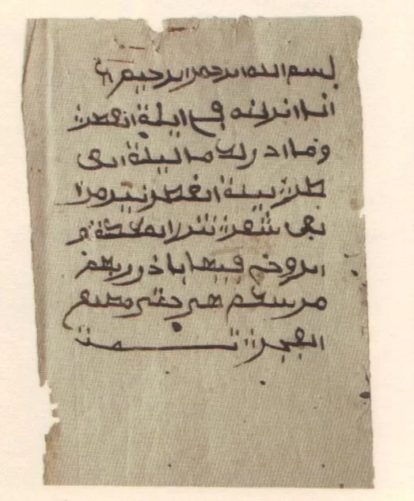 بسم الله الرحمن الرحيم
انا انزلنه في ليلة القدر
وما ادرىك ما ليلة القد
ر ليلة القدر خير من ا
لف شهر تنزل الملئكة و
الروح فيها باذن ربهم
من سلم هي حتى مطلع
الفجر تمت